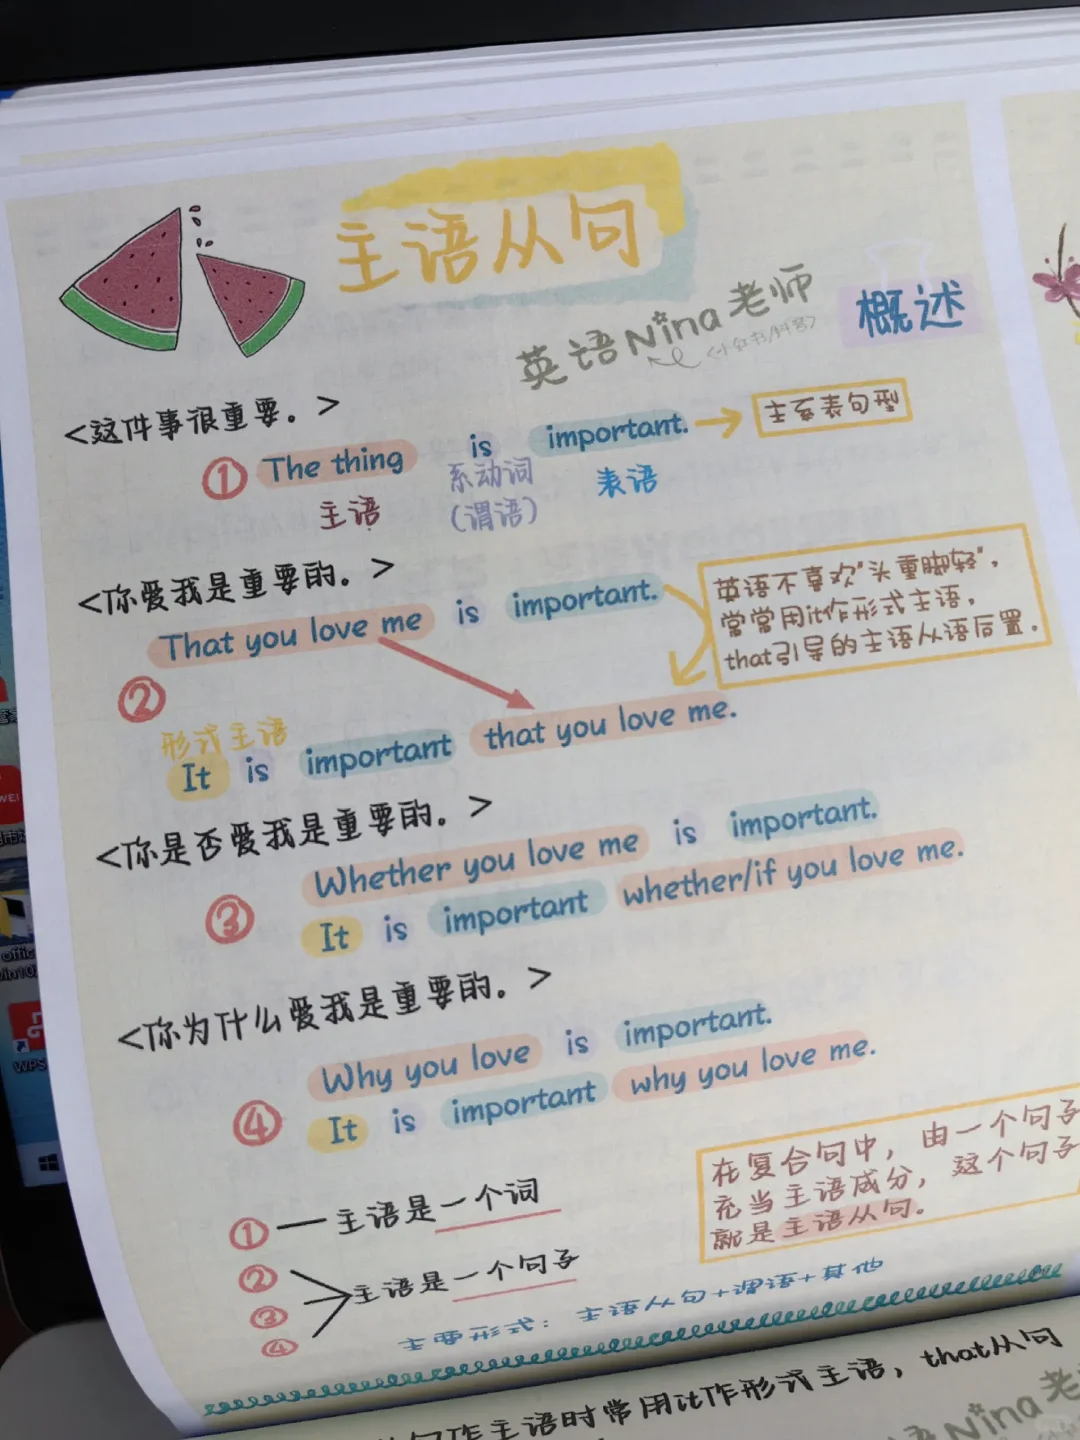 主语从句
英语Nina老师
<小红书/抖音>
概述
<这件事很重要。>
① The thing is important. → 主系表句型
主语 系动词 表语
(谓语)
<你爱我是重要的。>
That you love me is important.
英语不喜欢"头重脚轻",
常常用it作形式主语,
that引导的主语从语后置.
②
形式主语
It is important that you love me.
<你是否爱我是重要的。>
Whether you love me is important.
③
It is important whether/if you love me.
<你为什么爱我是重要的。>
Why you love is important.
④
It is important why you love me.
在复合句中, 由一个句子
充当主语成分, 这个句子
就是主语从句。
① — 主语是一个词
②
③ 主语是一个句子
④
主要形式: 主语从句+谓语+其他
句作主语时常用it作形式主语, that从句
语Nina老
WPS